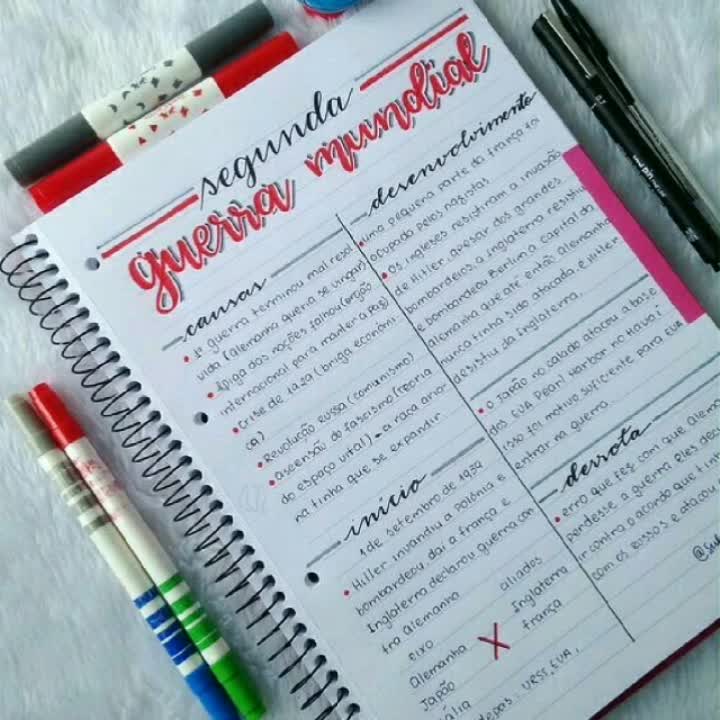 segunda
guerra mundial
causas
1ª guerra terminou mal resol
vida (alemanha queria se vingar)
A liga das nações falhou (orgão
internacional para manter a paz)
Crise de 1929 (briga econômi
ca)
Revolução russa (comunismo)
ascensão do fascismo (teoria
do espaço vital) - a raça aria
na tinha que se expandir
início
1 de setembro de 1939
Hitler invandiu a polônia e
bombardeou, daí a frança e
Inglaterra declarou guerra con
tra alemanha
eixo aliados
Alemanha X Inglaterra
Japão frança
depois: URSS, EUA,
desenvolvimento
uma pequena parte da frança foi
ocupada pelos nazistas
Os ingleses resistiram a invasão
de Hitler, apesar dos grandes
bombardeios, a inglaterra resistiu
e bombardeou Berlim, a capital da
alemanha que até então
nunca tinha sido atacada, e Hitler
desistiu da Inglaterra.
O Japão no calado atacou a base
dos EUA Pearl Harbor no Havaí;
isso foi motivo suficiente para EUA
entrar na guerra
derrota
erro que fez com que alema
perdesse a guerra eles dec
ir contra o acordo que tinh
com os russos e atacou